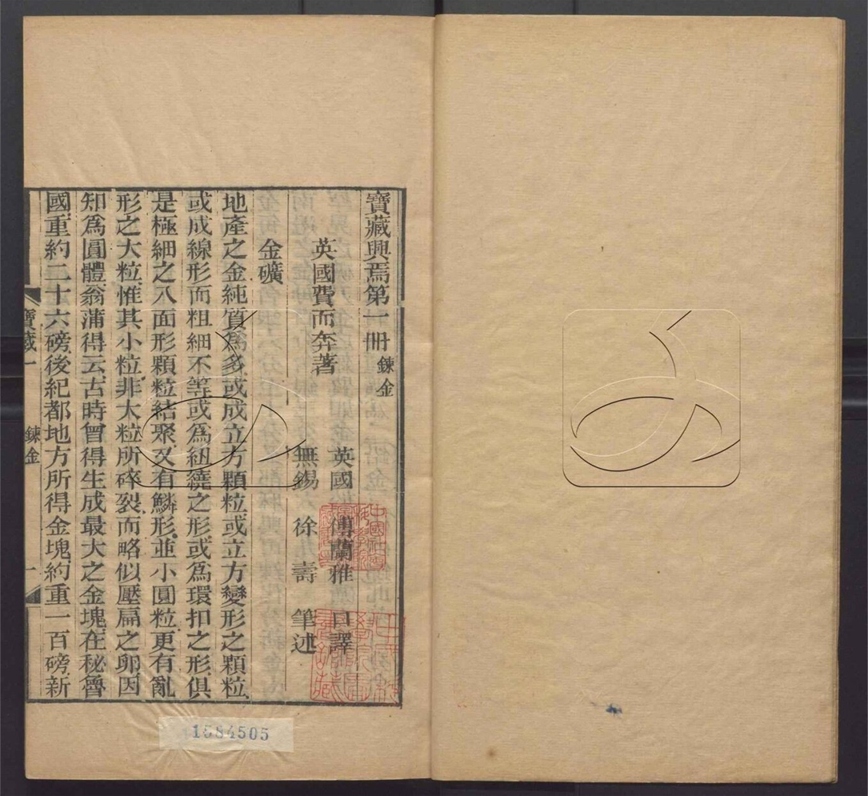 寶藏興焉第一冊 鍊金
英國費而奔著
英國 傅蘭雅 口譯
無錫 徐壽 筆述
金礦
地產之金純質爲多或成立方顆粒或立方變形之顆粒
或成線形而粗細不等或爲紐繞之形或爲環扣之形俱
是極細之八面形顆粒結聚又有鱗形並小圓粒更有亂
形之大粒惟其小粒非大粒所碎裂而略似壓扁之卵因
知爲圓體翁蒲得云古時曾得生成最大之金塊在秘魯
國重約二十六磅後紀都地方所得金塊約重一百磅新
寶藏一 鍊金 一
1684505